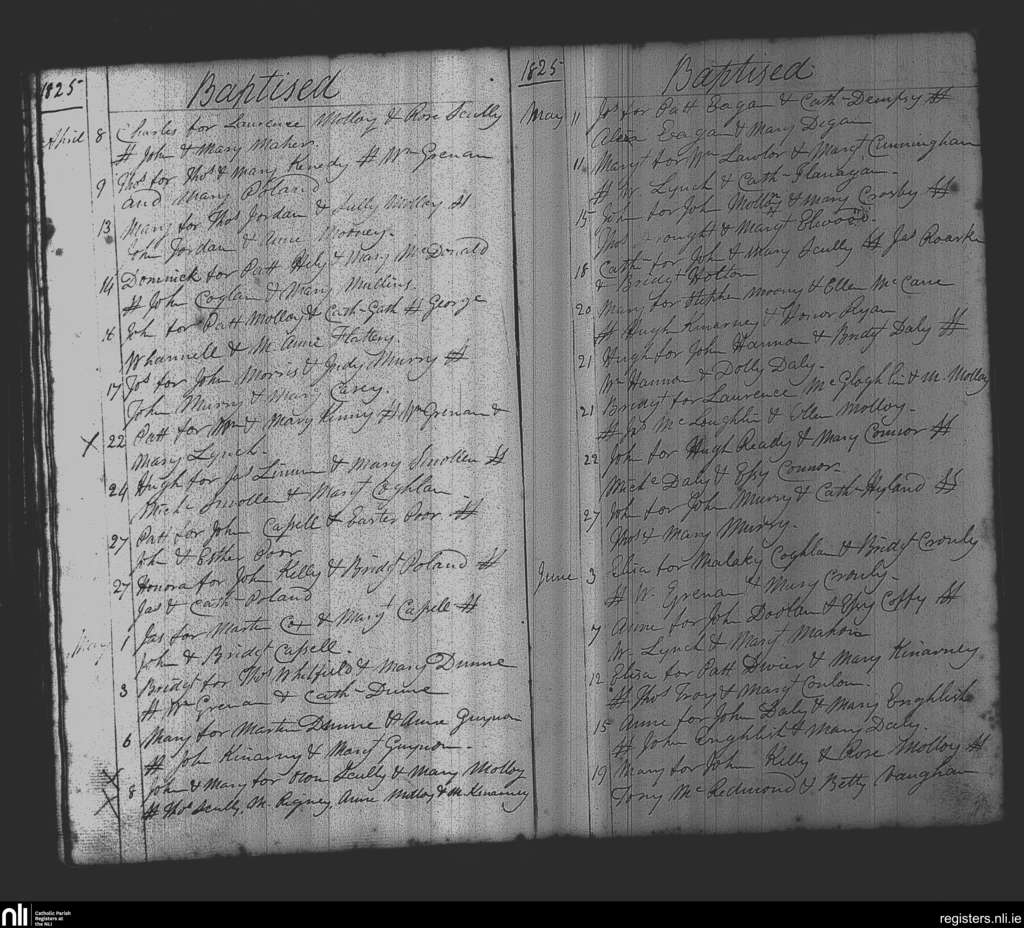 1825
Baptised
April 8 Charles for Laurence Molloy & Rose Scully
# John & Mary Maher.
9 Thos for Thos & Mary Kenedy # Wm Grenan
and Mary Poland
13 Mary for Thos Jordan & Jully Molloy #
John Jordan & Anne Mooney.
14 Dominick for Patt Hely & Mary McDonald
# John Coglan & Mary Mullins.
Joh for Patt Molloy & Cath- Gath # George
Whannell & M. Anne Flattery.
17 Jos for John Morris & Judy Murry #
John Murry & Mary Carey.
X 22 Patt for Wm & Mary Kinny # Wm Grenan &
Mary Lynch.
24 Hugh for Jas & Mary Smollen #
Michl Smollen & Margt Coghlan
27 Patt for John Capell & Easter Poor #
John & Esther Poor
27 Honora for John Kelly & Bridgt Poland #
Jas & Cath- Poland
May 1 Jas for Martn Cox & Margt Capell #
John & Bridgt Capell.
3 Bridgt for Thos Whitfield & Mary Dunne
# Wm Grenan & Cath- Dunne
6 Mary for Martin Dunne & Anne Guynon
# John Kinarny & Margt Guynon.
X 8 John & Mary for Owen Scully & Mary Molloy
X # Thos Scully, M. Rigney, Anne Molloy & M. Kinarney
1825
Baptised
May 11 Jos for Patt Eagan & Cath- Dempsy #
Alexa Eagan & Mary Degan
11 Margt for Wm Lawlor & Margt Cunningham
# W. Lynch & Cath- Flanagan.
15 John for John Molloy & Mary Crosby #
Thos & Margt Elwood.
18 Cath- for John & Mary Scully # Jas Roarke
& Bridgt Holton
20 Mary for Stephn Moony & Ellen McCane
# Hugh Kinarney & Honor Ryan
21 Hugh for John Hannon & Bridgt Daly #
Wm Hannon & Dolly Daly.
21 Bridgt for Laurence McGloghlin & M. Molloy
# Jas McLoughlin & Ellen Molloy.
22 John for Hugh Ready & Mary Connor #
Michl Daly & Essy Connor.
27 John for John Murry & Cath- Hyland #
Thos & Mary Murry.
June 3 Eliza for Malaky Coghlan & Bridgt Crouly
# W. Grenan & Mary Crouly.
7 Anne for John Doolan & Essy Coffy #
W. Lynch & Margt Mahon
12 Eliza for Patt Dwier & Mary Kinarney
# Thos Troy & Margt Conlon.
15 Anne for John Daly & Mary Enghlish
# John Enghlish & Mary Daly.
19 Mary for John Kelly & Rose Molloy #
Tony McRedmond & Betty Vaughan
nli
Catholic Parish
Registers at
the NLI
registers.nli.ie